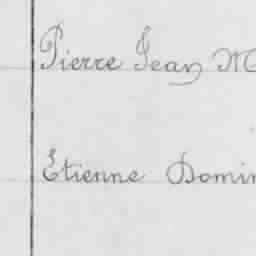 Pierre Jean M
Etienne Domin